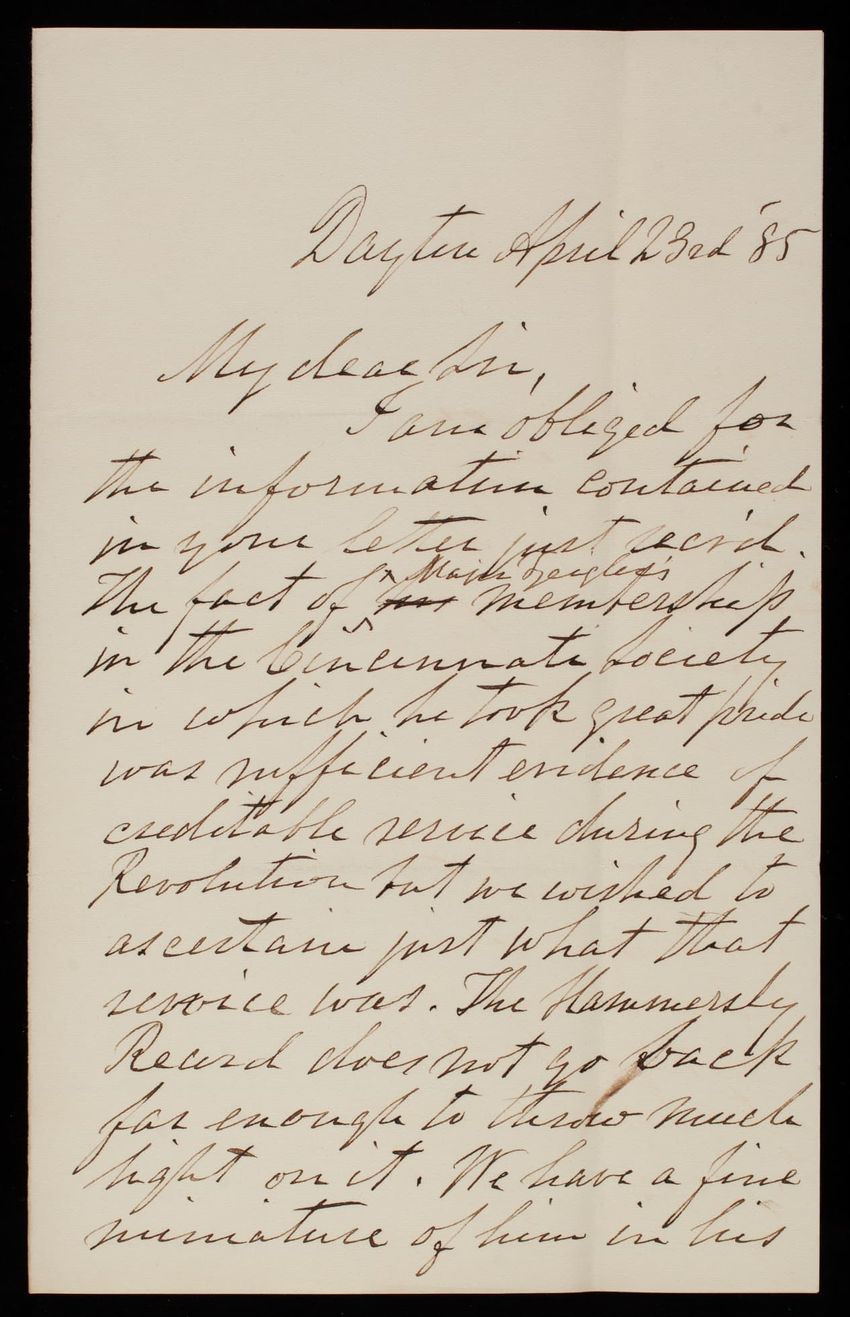 Dayton April 23rd '85
My dear Sir,
I am obliged for
the information contained
in your letter just rec'd.
Major Zeigler's
The fact of his membership
in the Cincinnati Society
in which he took great pride
was sufficient evidence of
creditable service during the
Revolution but we wished to
ascertain just what that
service was. The Hammersly
Record does not go back
far enough to throw much
light on it. We have a fine
miniature of him in his